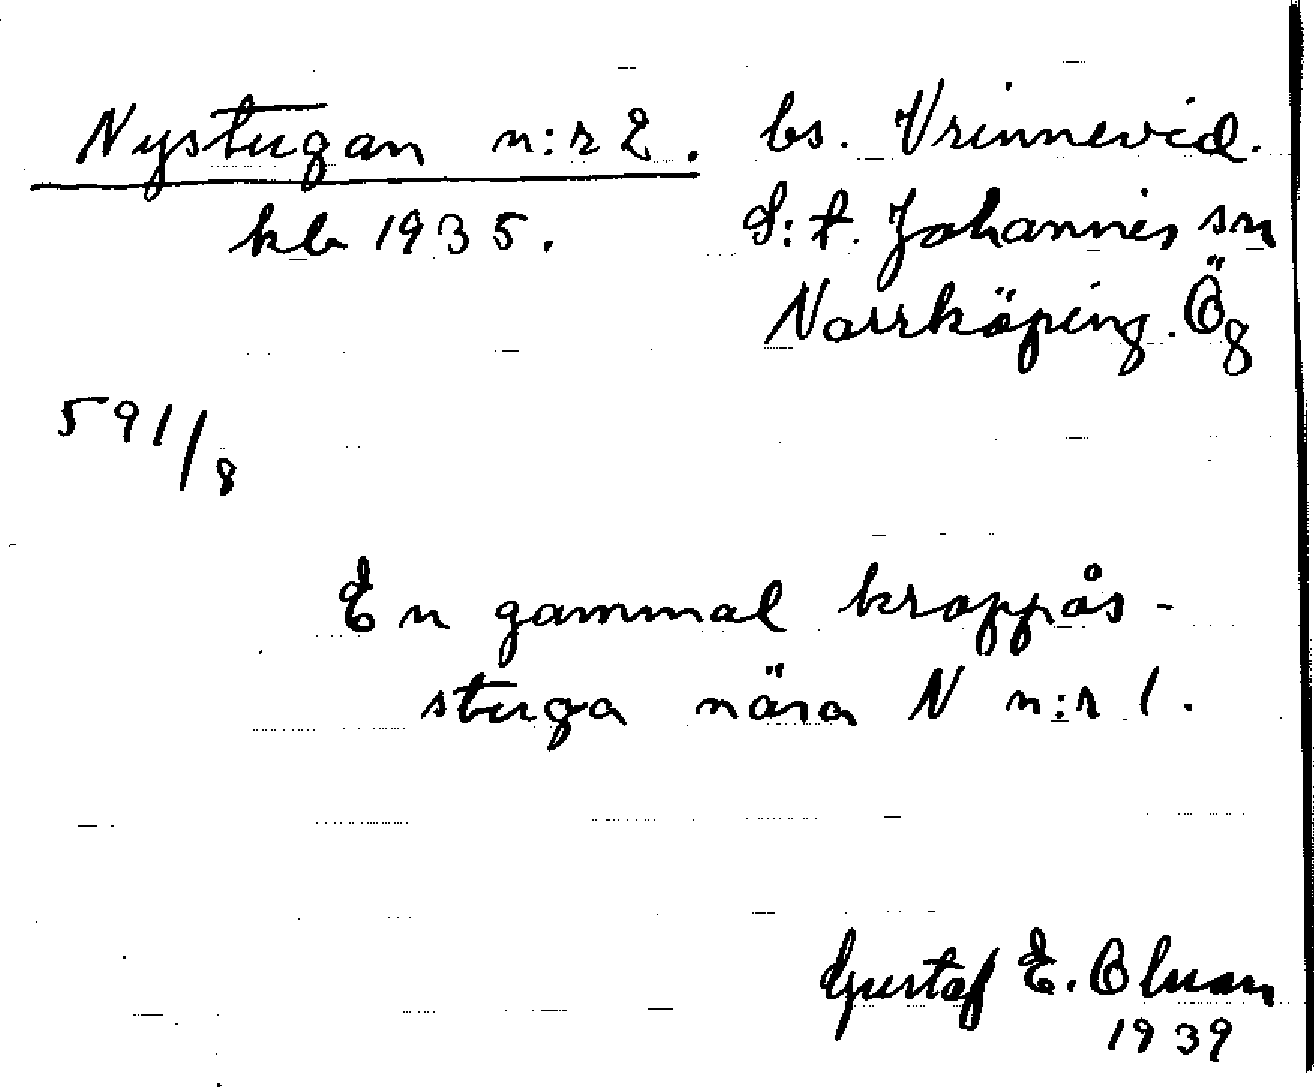 Nystugan n:r 2. bs. Vrinnevid.
kb 1935. S:t. Johannes sn
Norrköping. Ög
591/8
En gammal kroppås-
stuga nära N n:r 1.
Gustaf E. Olman
1939